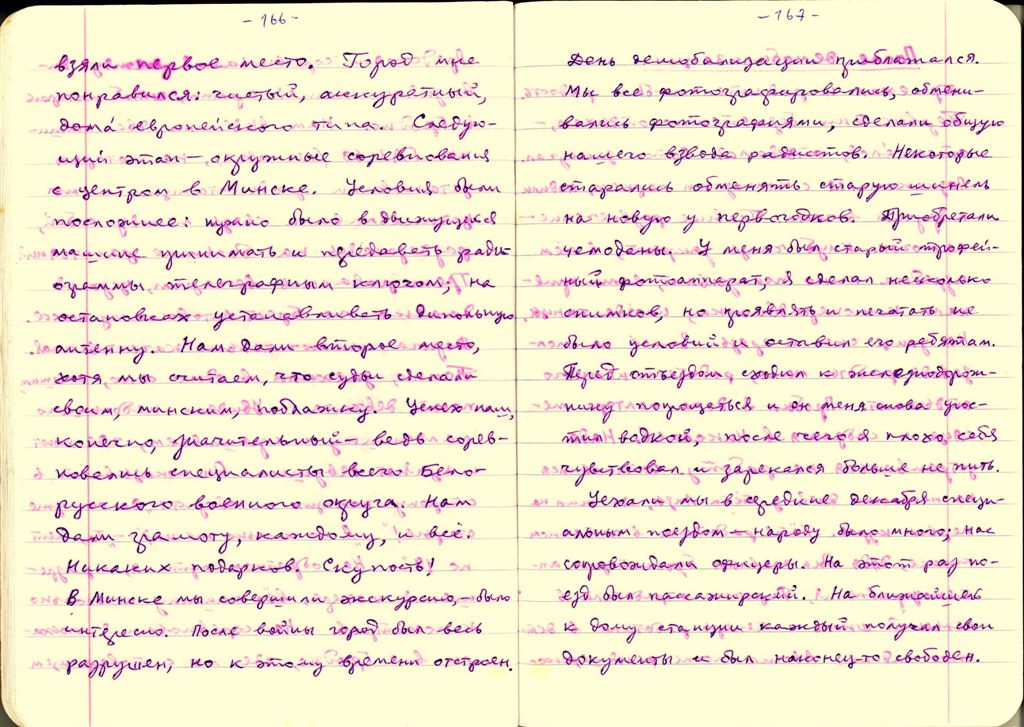 - 166 -
взяли первое место. Город мне
понравился: чистый, аккуратный,
дома́ европейского типа. Следую-
щий этап – окружные соревнования
с центром в Минске. Условия были
посложнее: нужно было в движущейся
машине принимать и передавать ради-
ограммы телеграфным ключом; на
остановках устанавливать дипольную
антенну. Нам дали второе место,
хотя мы считаем, что судьи сделали
своим, минским, поблажку. Успех наш,
конечно, значительный – ведь сорев-
новались специалисты всего Бело-
русского военного округа. Нам
дали грамоту, каждому, и всё.
Никаких подарков. Скупость!
В Минске мы совершили экскурсию, – было
интересно. После войны город был весь
разрушен, но к этому времени отстроен.
- 167 -
День демобализации приближался.
Мы все фотографировались, обмени-
вались фотографиями, сделали общую
нашего взвода радистов. Некоторые
старались обменять старую шинель
на новую у первогодков. Приобретали
чемоданы. У меня был старый трофей-
ный фотоаппарат; я сделал несколько
снимков, но проявлять и печатать не
было условий и оставил его ребятам.
Перед отъездом сходил к
попрощаться и он меня снова угос-
тил водкой, после чего я плохо себя
чувствовал и зарекался больше не пить.
Уехали мы в середине декабря специ-
альным поездом – народу было много; нас
сопровождали офицеры. На этот раз по-
езд был пассажирский. На ближайшей
к дому станции каждый получал свои
документы и был наконец-то свободен.